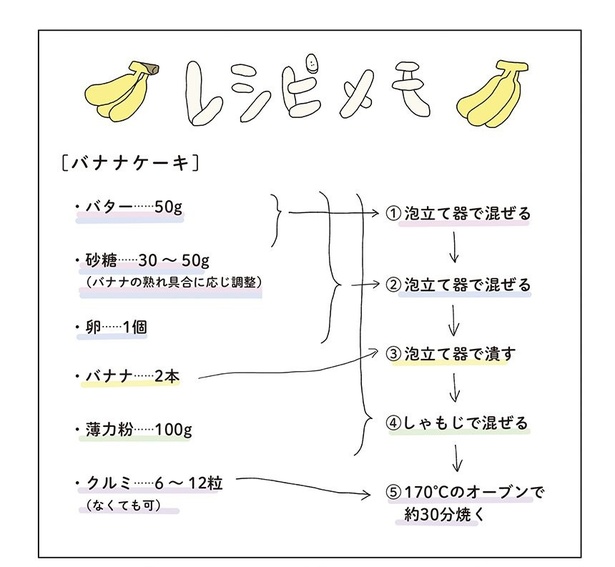 レシピメモ
［バナナケーキ］
・バター……50g
・砂糖……30～50g
（バナナの熟れ具合に応じ調整）
・卵……1個
・バナナ……2本
・薄力粉……100g
・クルミ……6～12粒
（なくても可）
①泡立て器で混ぜる
②泡立て器で混ぜる
③泡立て器で潰す
④しゃもじで混ぜる
⑤170℃のオーブンで
約30分焼く